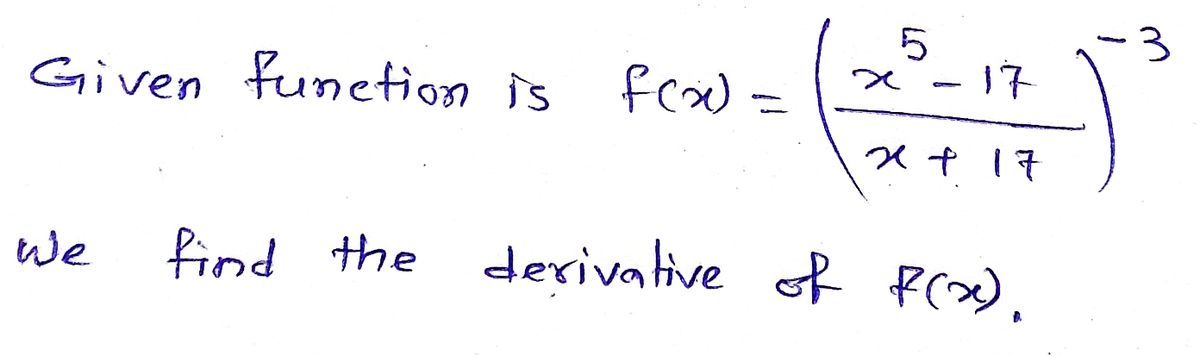 Given function is f(x) = ((x^5 - 17)/(x + 17))^-3
We find the derivative of f(x).